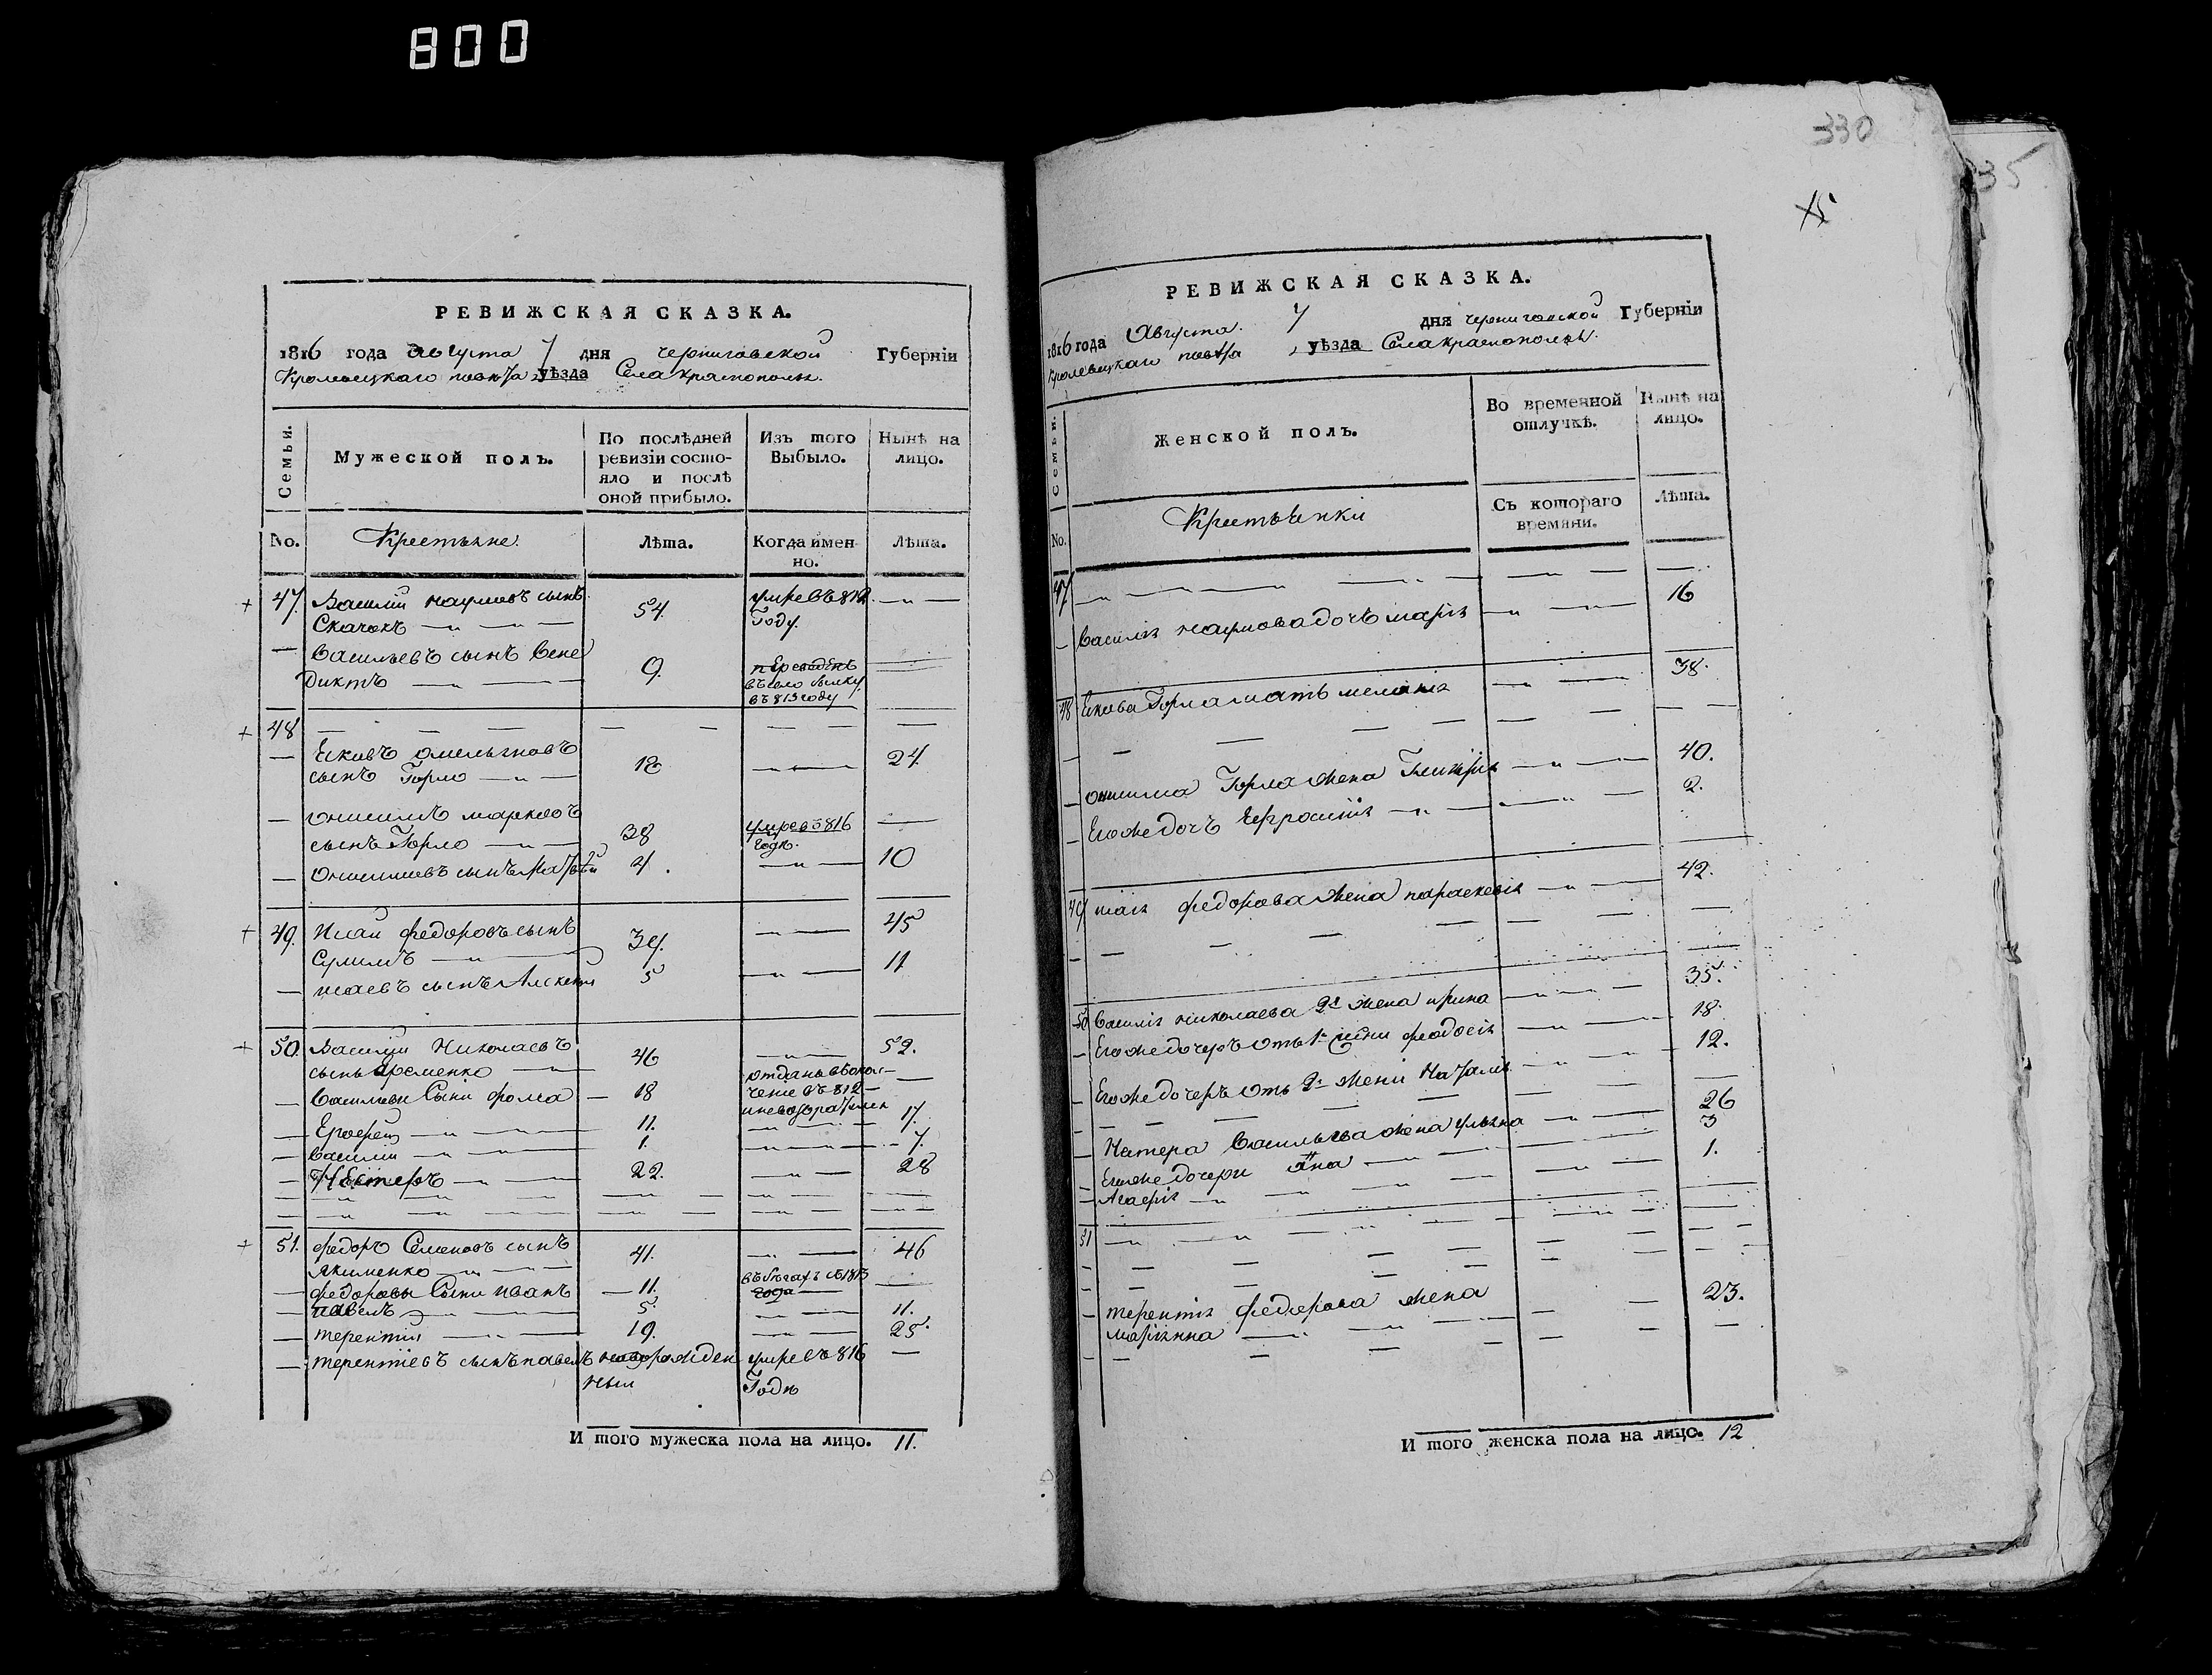 800
330
35
X5
РЕВИЖСКАЯ СКАЗКА.
1816 года Августа 7 дня черниговской Губерніи
Кролевецкаго повѣта уѣзда Села Краснополья.
Семьи.
Мужеской полъ.
По послѣдней
ревизіи состо-
яло и послѣ
оной прибыло.
Изъ того
Выбыло.
Нынѣ на
лицо.
No.
Крестьяне.
Лѣта.
Когда имен
но.
Лѣта.
47. Василій наумовъ сынъ 54. умре въ 812
Скачокъ Году.
Васильевъ сынъ Вене 9. переведенъ
диктъ въ село
въ 813 году
48
Яковъ омельяновъ 18 24
сынъ Горло
онисимъ марковъ 38 умре в 816
сынъ Горло годѣ.
Онисимовъ сынъ Матвѣй 4. 10
49. Исаи федоровъ сынъ 39. 45
Сулимъ
исаевъ сынъ Алексѣй 5 11
50. Василій Николаевъ 46 52.
сынъ Яременко отданъ в
Василіеви Сыни фома 18 въ 812
Ерофей 11. 17.
Василій 1. 7.
Нестеръ 22. 28
51. федоръ Семеновъ сынъ 41. 46
Якименко
федоровы Сыни иванъ 11. въ бѣгахъ съ 1813
года
павелъ 5. 11.
терентій 19. 25.
терентіевъ сынъ павелъ новорожден умре въ 816
ныи Годѣ
И того мужеска пола на лицо. 11.
РЕВИЖСКАЯ СКАЗКА.
1816 года Августа. 7 дня черниговской Губерніи
Кролевецкаго повѣта уѣзда Села Краснополья.
Семьи.
Женской полъ.
Во временной
отлучкѣ.
Нынѣ на
лицо.
No.
Крестьянки
Съ котораго
времяни.
Лѣта.
47
Василія наумова дочь марія 16
48 Якова Горла мать меланія 38.
онисима Горла жена Гликерія 40.
Его же дочь Ефросинія 2.
49 исаія федорова жена параскевія 42.
50 Василія николаева 2я жена ирина 35.
Его же дочеръ отъ 1й жени феодосія 18.
Его же дочеръ отъ 2й жени Наталія 12.
Нестера Васильева жена уляна 26
Его же дочери Анна 3
Агафія 1.
51
терентія федорова жена 23.
маріянна
И того женска пола на лицо. 12